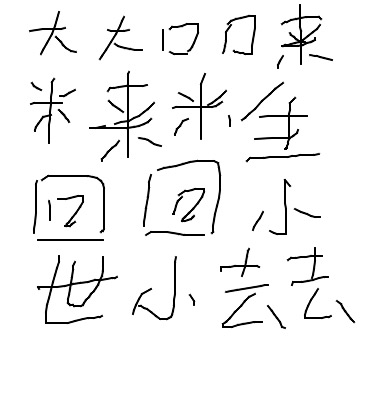 大大口口来
米来米生
回回小
世小去去